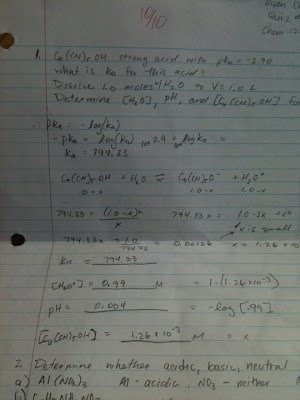 10/10
Quiz
Chem 12
1. C5(CN)5OH strong acid with pKa = -2.90
what is Ka for this acid?
Dissolve 1.0 moles w/ H2O to V = 1.0 L
Determine [H3O], pH, and [C5(CN)5OH]
pKa = -log(Ka)
Ka = 794.33
C5(CN)5OH + H2O ⇌ C5(CN)5O- + H3O+
0+x 1.0-x 1.0-x
794.33 = (1.0-x)²/x 794.33x = 1.0 -2x +x²
x is small
794.33x = 1.0/794.33 = 0.00126 x = 1.26 x10
Ka = 794.33
[H3O+] = 0.99 M = 1-(1.26x10-3)
pH = 0.004 = -log [.99]
[C5(CN)5OH] = 1.26x10-3 M = x
2. Determine whether acidic, basic, neutral
a) Al(NO3)3 Al - acidic, NO3 - neither